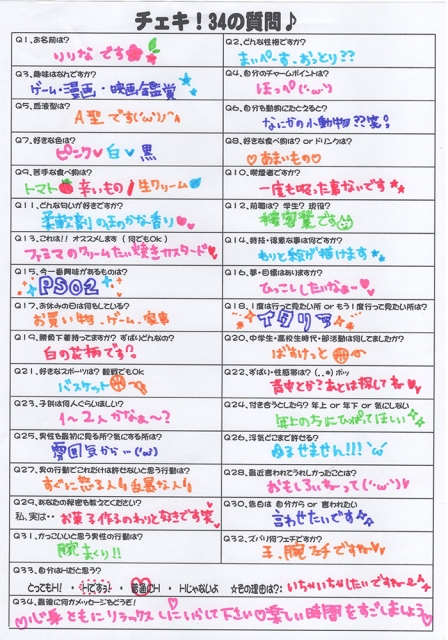 チェキ！34の質問♪
Q1、お名前は？
りりな です
Q2、どんな性格ですか？
まいぺーす、おっとり??
Q3、趣味はなんですか？
ゲーム・漫画・映画鑑賞
Q4、自分のチャームポイントは？
ほっぺ(・ω・)
Q5、血液型は？
A型 です(・ω・)ノ
Q6、自分を動物にたとえると？
なにかの小動物??笑
Q7、好きな色は？
ピンク♡白♡黒
Q8、好きな食べ物は？ or ドリンクは？
♡あまいもの♡
Q9、苦手な食べ物は？
トマト 辛いもの！生クリーム
Q10、喫煙者ですか？
一度も吸った事ないです
Q11、どんな匂いが好きですか？
柔軟剤のほのかな香り♡
Q12、前職は？ 学生？ 現役？
接客業です
Q13、これは!! オススメします（ 何でもOK）
ファミマのクリームたい焼きカスタード♡
Q14、特技・得意な事は何ですか？
わりと絵が描けます
Q15、今一番興味があるものは？
PSO2
Q16、夢・目標はありますか？
ひっこししたいなぁー♡
Q17、お休みの日は何をしている？
お買い物、ゲーム、家事
Q18、1度は行って見たい所 or もう1度行って見たい所は？
イタリア
Q19、勝負下着持ってますか？ ずばりどんなの？
白の花柄です?
Q20、中学生・高校生時代・部活動は何してましたか？
ばすけっと
Q21、好きなスポーツは？ 観戦でもOK
バスケット
Q22、ずばり・性感帯は？（,,*）ポッ
背中とか?あとは探してね♡
Q23、子供は何人ぐらいほしい？
1〜2人かなぁ〜?
Q24、付き合うとしたら？ 年上 or 年下 or 気にしない
年上の方にひかれてほしい
Q25、男性を最初に見る所？気にする所は？
雰囲気から…(・ω・)
Q26、浮気どこまで許せる？
ゆるせません!!!
Q27、男の行動でこれだけは許せないと思う行動は？
すぐに怒る人、乱暴な人
Q28、最近言われてうれしかったことは？
おもしろいねーって(・ω・)♡
Q29、あなたの秘密を教えてください？
私、実は‥ お菓子作るのわりと好きです笑
Q30、告白は 自分から or 言われたい
言わせたいです
Q31、かっこいいと思う男性の行動は？
腕まくり!!
Q32、ズバリ何フェチですか？
手、腕フェチですね♡
Q33、自分はHだと思う？
とってもH！ ・ Hですぅ！ ・ 普通にH ・ Hじゃないよ ☆その理由は？： いちゃいちゃしたいですねー
Q34、最後に何かメッセージをどうぞ！
♡心身ともにリラックスしにいらして下さい♡楽しい時間をすごしましょう♡